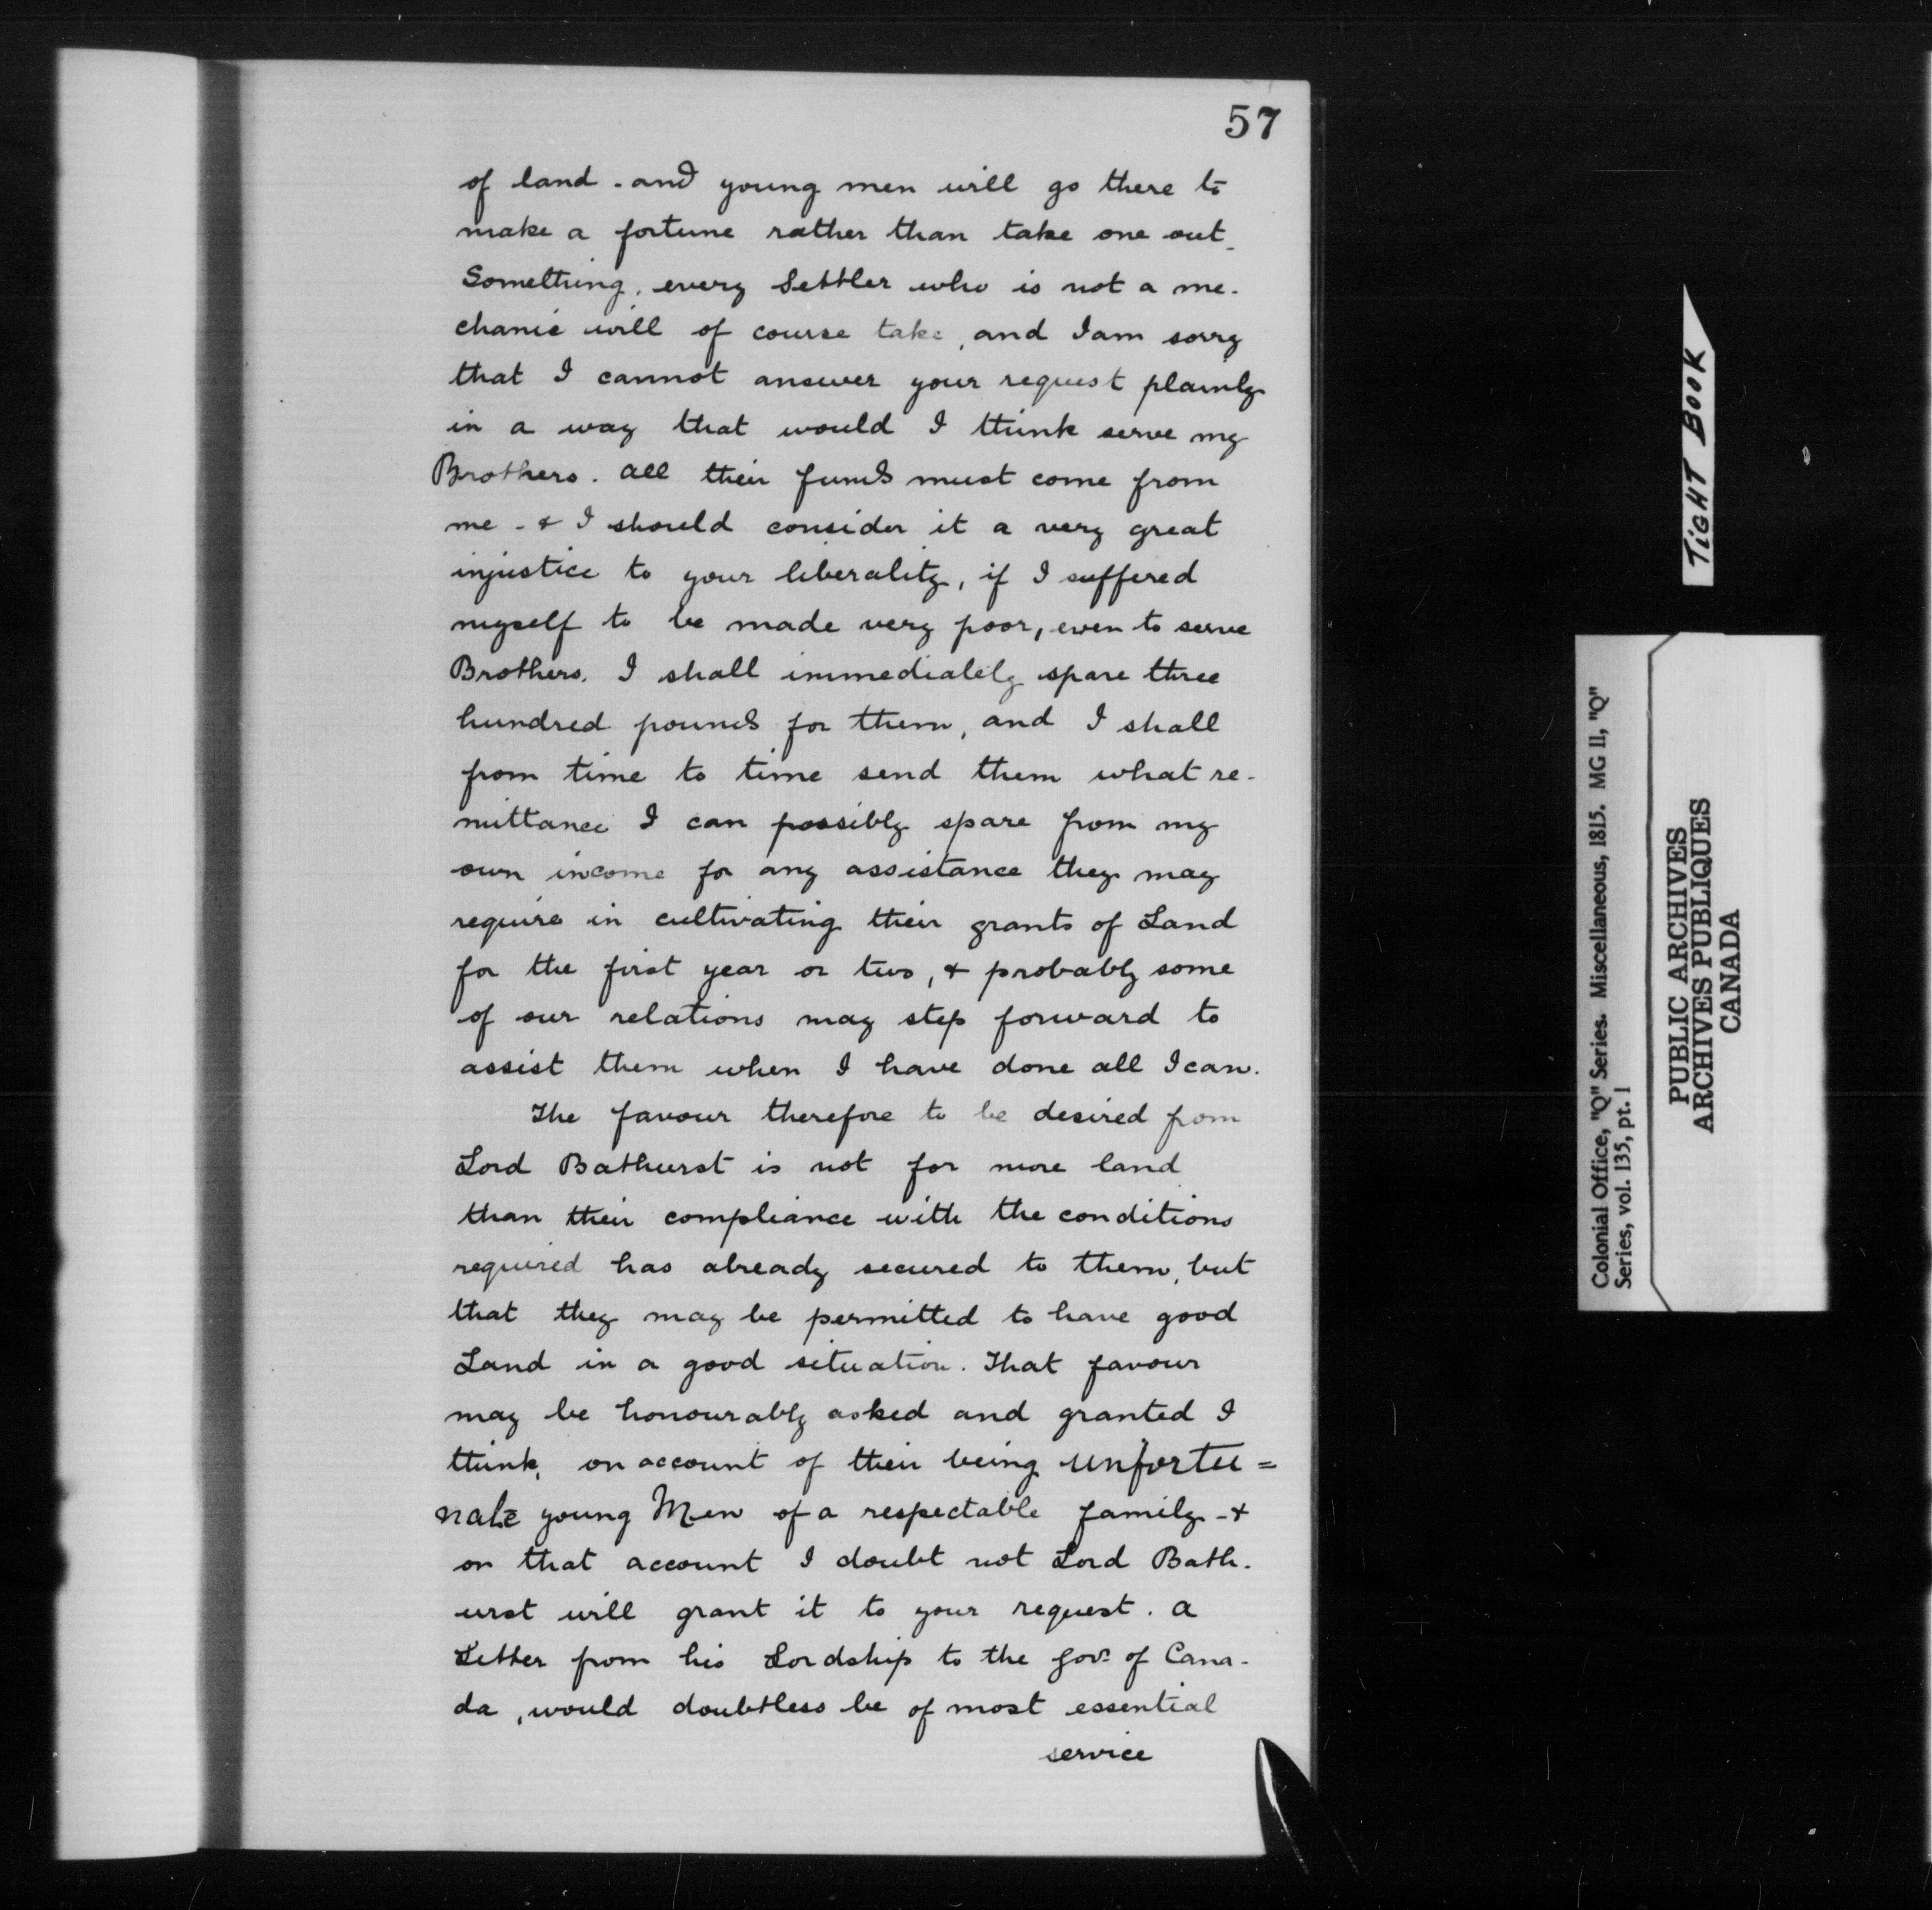 57
of land - and young men will go there to
make a fortune rather than take one out.
Something, every Settler who is not a me-
chanic will of course take, and I am sorry
that I cannot answer your request plainly
in a way that would I think serve my
Brothers. All their funds must come from
me - & I should consider it a very great
injustice to your liberality, if I suffered
myself to be made very poor, even to serve
Brothers. I shall immediately spare three
hundred pounds for them, and I shall
from time to time send them what re-
mittance I can possibly spare from my
own income for any assistance they may
require in cultivating their grants of Land
for the first year or two, & probably some
of our relations may step forward to
assist them when I have done all I can.
The favour therefore to be desired from
Lord Bathurst is not for more land
than their compliance with the conditions
required has already secured to them, but
that they may be permitted to have good
Land in a good situation. That favour
may be honourably asked and granted I
think, on account of their being unfortu=
nate young Men of a respectable family - &
on that account I doubt not Lord Bath-
urst will grant it to your request. A
Letter from his Lordship to the Govr. of Cana-
da, would doubtless be of most essential
service
TIGHT BOOK
Colonial Office, "Q" Series. Miscellaneous, 1815. MG 11, "Q"
Series, vol. 135, pt. 1
PUBLIC ARCHIVES
ARCHIVES PUBLIQUES
CANADA